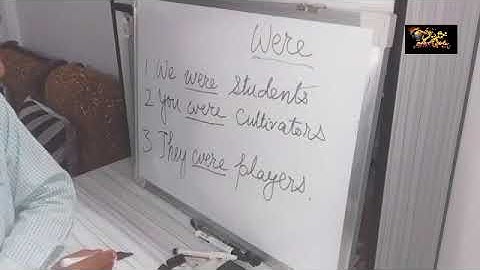 Were
1 We were students
2 You were cultivators
3 They were players.